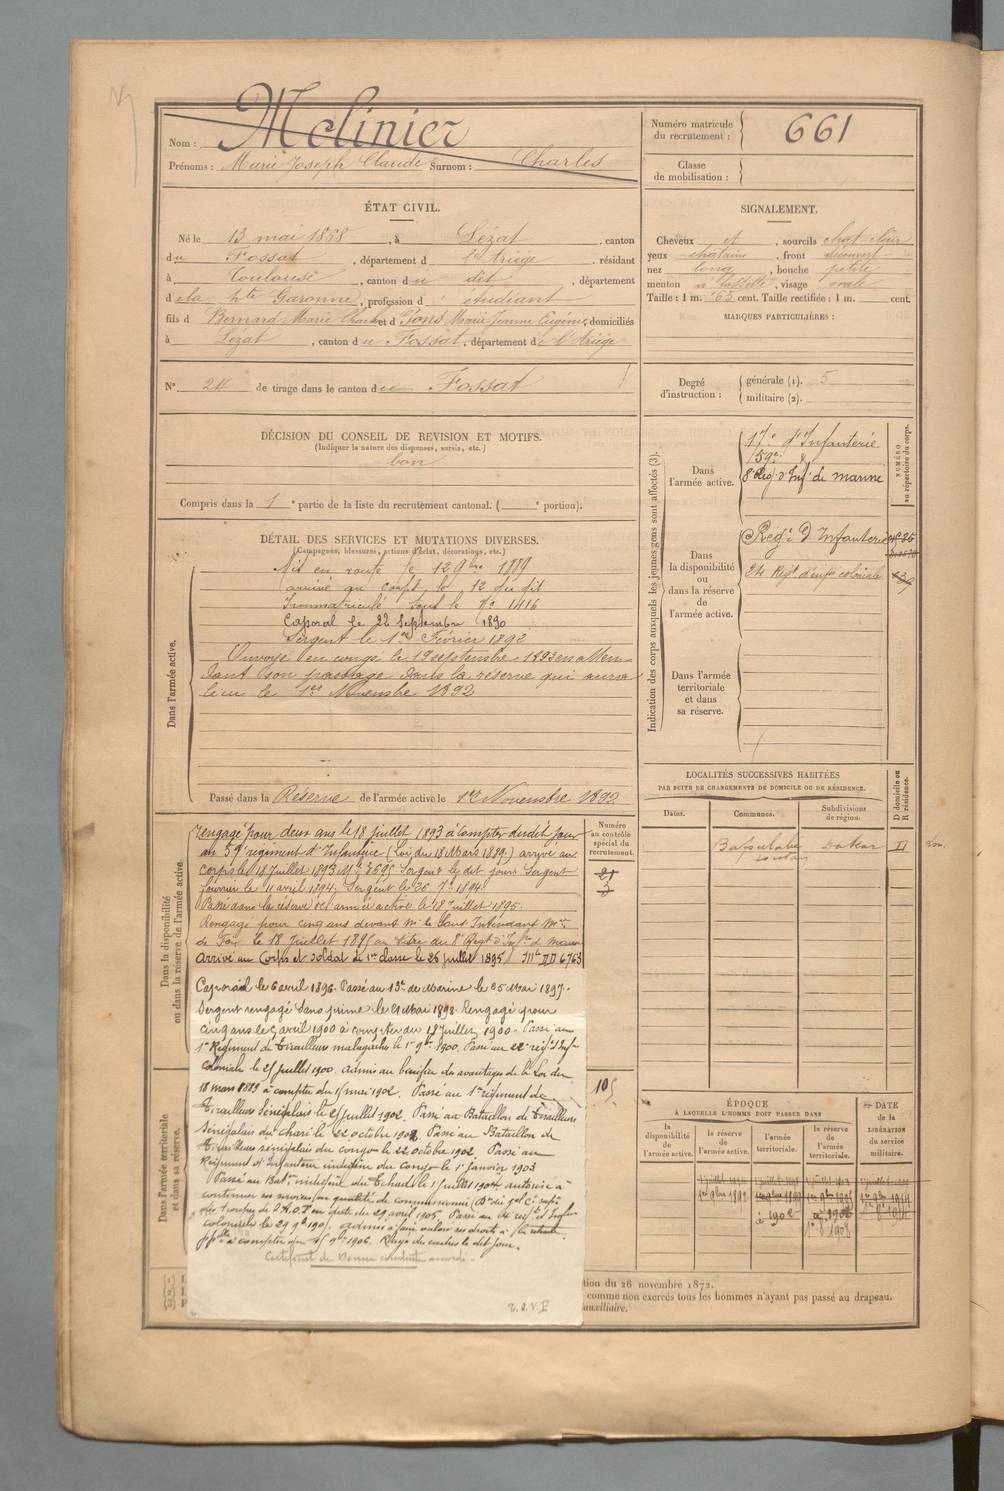 Nom : Molinier
Prénoms : Marie Joseph Claude Surnom : Charles
Numéro matricule du recrutement : 661
Classe de mobilisation :
ÉTAT CIVIL.
Né le 13 mai 1868, à Lézat, canton
du Fossat, département d l'Ariège, résidant
à Toulouse, canton du dit, département
d ela hte Garonne, profession d' étudiant
fils d Bernard Marie Charles et d Pons Marie Jeanne Eugénie, domiciliés
à Lézat, canton du Fossat, département de l'Ariège
SIGNALEMENT.
Cheveux et, sourcils chat clair
yeux chatains, front découvert
nez long, bouche petite
menton à fossette, visage ovale
Taille : 1 m. 63 cent. Taille rectifiée : 1 m. cent.
MARQUES PARTICULIÈRES :
N° 24 de tirage dans le canton du Fossat
Degré d'instruction : générale (1). 5
militaire (2).
DÉCISION DU CONSEIL DE REVISION ET MOTIFS.
(Indiquer la nature des dispenses, sursis, etc.)
bon
Compris dans la 1e partie de la liste du recrutement cantonal. ( e portion).
DÉTAIL DES SERVICES ET MUTATIONS DIVERSES.
(Campagnes, blessures, actions d'éclat, décorations, etc.)
Dans l'armée active.
Mis en route le 12 9bre 1889
arrivé au corps le 12 du dit
Immatriculé sous le No 1416
Caporal le 22 Septembre 1890
Sergent le 1er Février 1892
Envoyé en congé le 19 septembre 1892 en atten
dant son passage dans la réserve qui aura
lieu le 1er Novembre 1892
Passé dans la Réserve de l'armée active le 1er Novembre 1892
Indication des corps auxquels les jeunes gens sont affectés (3).
NUMÉRO au répertoire du corps.
Dans l'armée active.
17e d'Infanterie
59e
8e Reg. d'Inf. de marine
Dans la disponibilité ou dans la réserve de l'armée active.
Régt d'Infanterie
24 Régt d'infie coloniale
Dans l'armée territoriale et dans sa réserve.
LOCALITÉS SUCCESSIVES HABITÉES
PAR SUITE DE CHANGEMENTS DE DOMICILE OU DE RÉSIDENCE.
Dates. Communes. Subdivisions de région. D domicile ou R résidence.
Bafoulabé Dakar
soudan
Dans la disponibilité ou dans la réserve de l'armée active.
Numéro au contrôle spécial du recrutement.
rengagé pour deux ans le 18 juillet 1893 à compter dudit jour
au 59e régiment d'Infanterie (Loi du 18 Mars 1889) arrivé au
corps le 18 Juillet 1893 Sergent le dit jour Sergent
fourrier le 11 avril 1894, Sergent le 26 7bre 1894
Passé dans la réserve de l'armée active le 18 Juillet 1895.
Rengagé pour cinq ans devant Mr le Sous Intendant Mre
de Foix le 18 Juillet 1895 au titre du 8e Régt d'Infie de marine
Arrivé au Corps et soldat de 1re classe le 25 juillet 1895
Caporal le 6 avril 1896. Passé au 13e de Marine le 25 Mai 1897.
Sergent rengagé sans prime le 21 Mai 1898. Rengagé pour
cinq ans le 5 avril 1900 à compter du 18 Juillet 1900. Passé au
1er Régiment de Tirailleurs malgaches le 1er 9bre 1900. Passé au 22e régt d'Infie
Coloniale le 21 Juillet 1900. Admis au bénéfice des avantages de la Loi du
18 mars 1889 à compter du 1er mai 1902. Passé au 1er régiment de
Tirailleurs Sénégalais le 21 Juillet 1902. Passé au Bataillon de Tirailleurs
Sénégalais du chari le 22 octobre 1902. Passé au Bataillon de
Tirailleurs sénégalais du congo le 22 octobre 1902. Passé au
Régiment d'Infanterie indigène du Congo le 1er Janvier 1903
Passé au Batn indigène du Tchad le 1er Juillet 1904 autorisé à
continuer ses services en qualité de commissionné
des troupes de l'A.O.F en date du 29 avril 1905. Passé au
coloniale le 29 9bre 1905. admis à faire valoir ses droits à la retraite
à compter du 9bre 1906. Rayé des contrôles le dit jour.
Certificat de Bonne conduite accordé.
Dans l'armée territoriale et dans sa réserve.
105
ÉPOQUE
À LAQUELLE L'HOMME DOIT PASSER DANS
la disponibilité de l'armée active.
la réserve de l'armée active.
l'armée territoriale.
la réserve de l'armée territoriale.
DATE de la LIBÉRATION du service militaire.
à 1902
1908
tion du 26 novembre 1872.
comme non exercés tous les hommes n'ayant pas passé au drapeau.
auxiliaire.